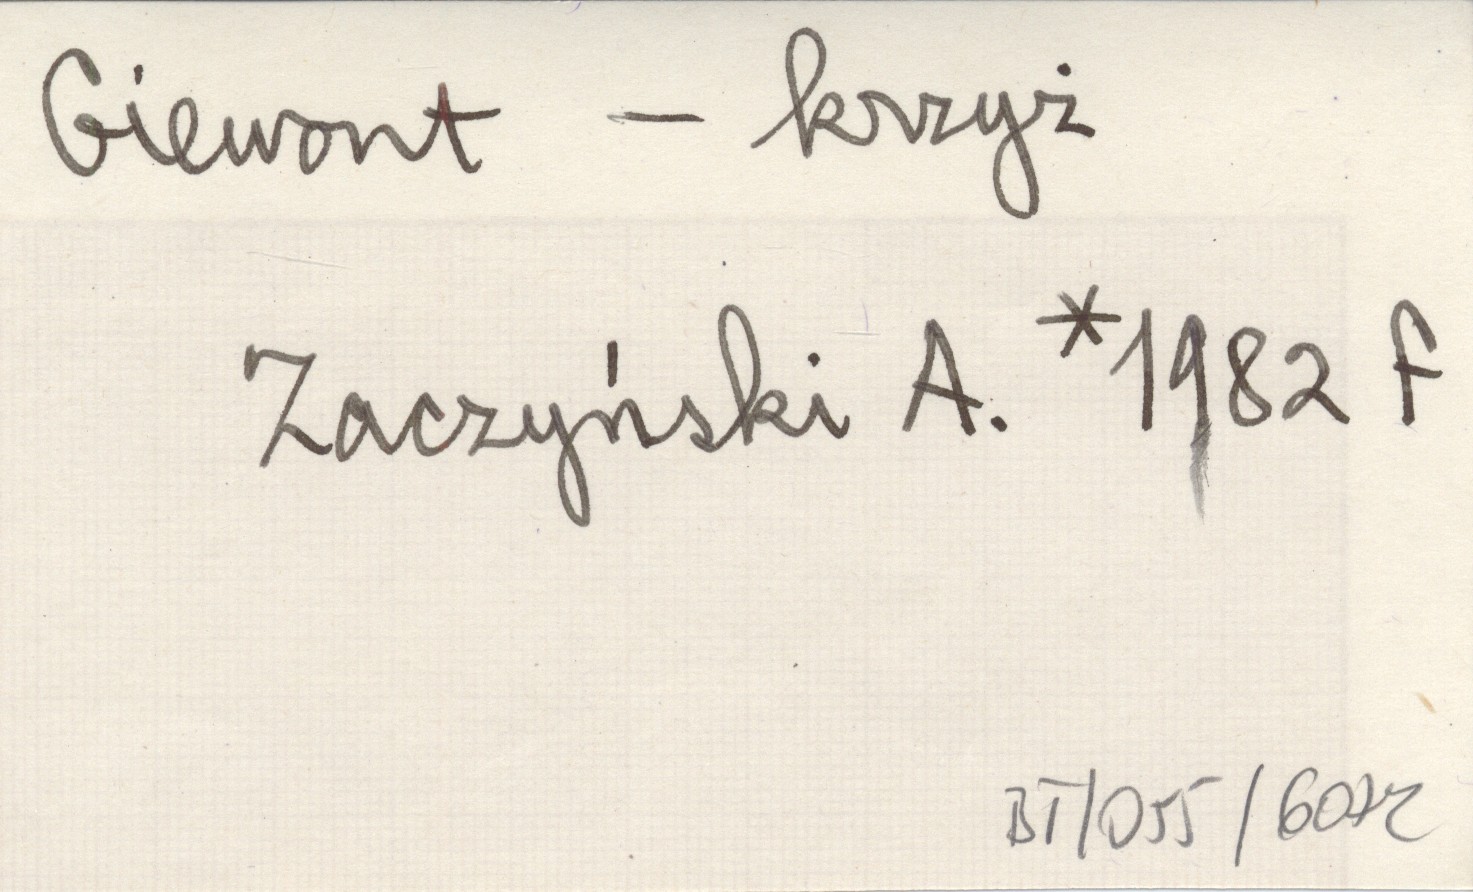 Giewont - krzyż
Zaczyński A. *1982 F
BT/055/6072